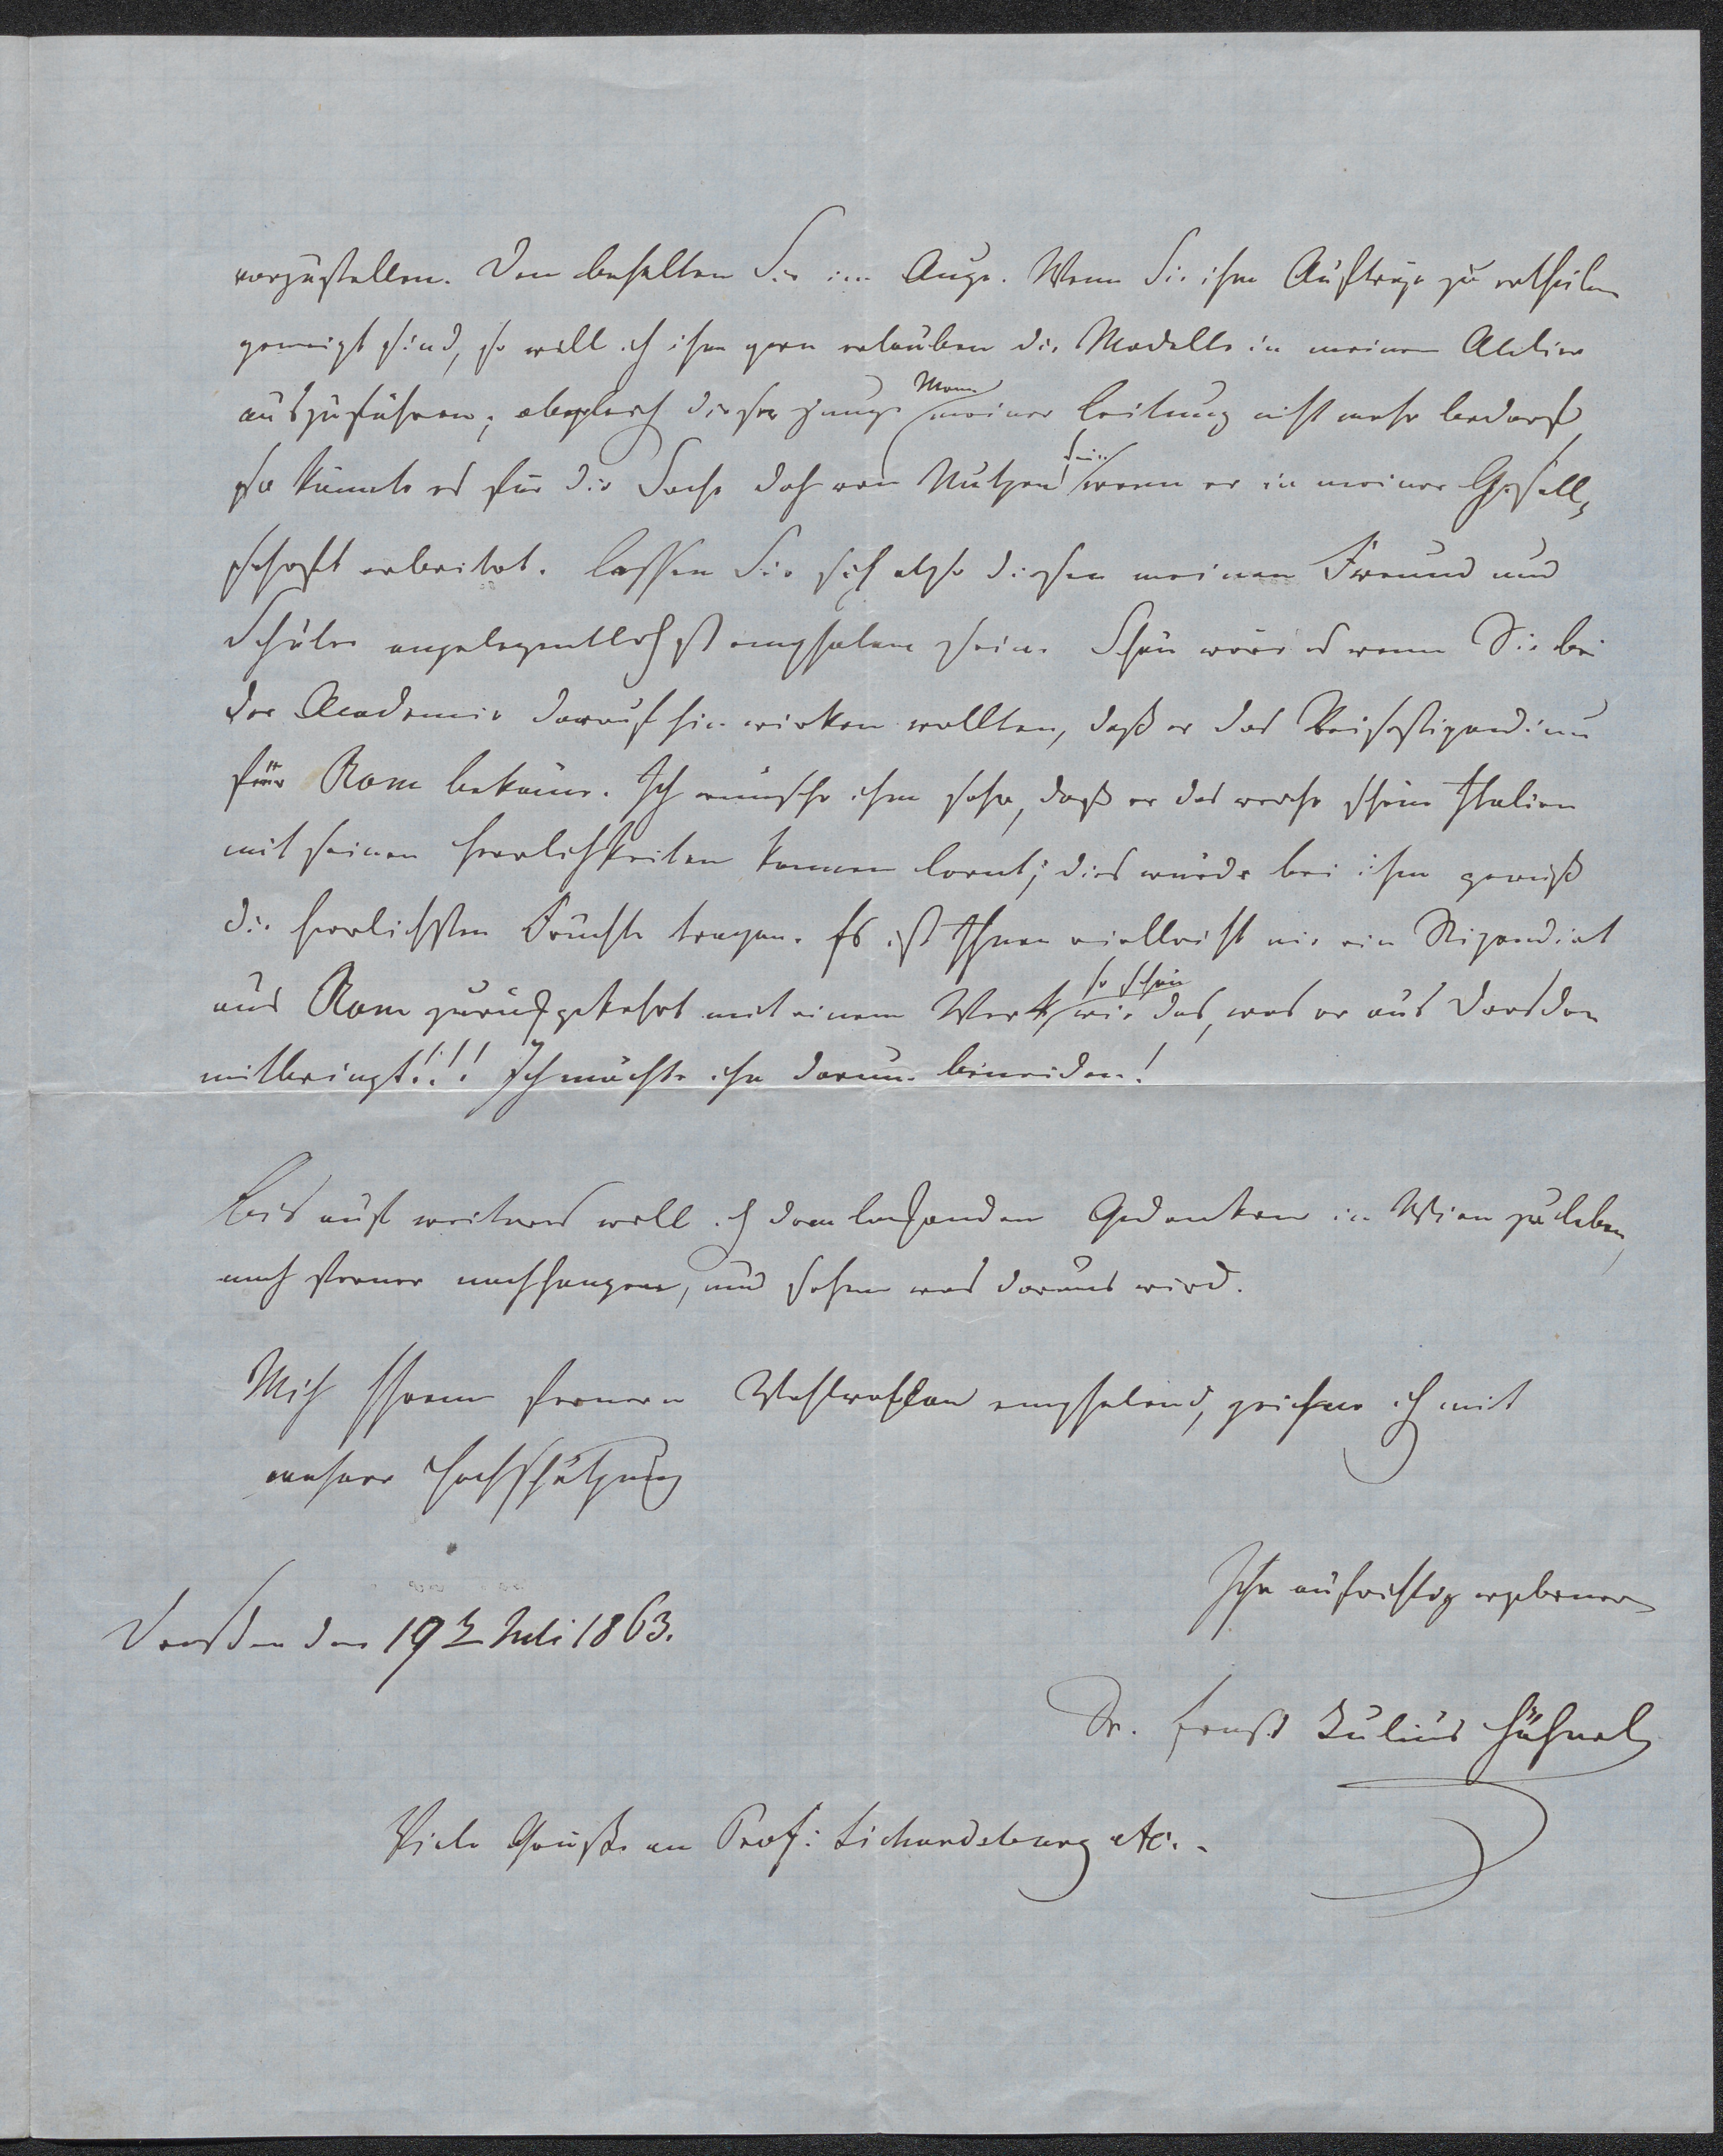 vorzustellen. Den behalten Sie im Auge. Wenn Sie ihm Aufträge zu ertheilen
geneigt sind, so will ich ihm gern erlauben die Modelle in meinem Atelier
auszuführen; obgleich dieser junge Mann meiner Leitung nicht mehr bedarf
so könnte es für die Sache doch von Nutzen sein wenn er in meiner Gesell,
schaft arbeitet. Lassen Sie sich also diesen meinen Freund und
Schüler angelegentlichst empfolen sein. Schön wäre es wenn Sie bei
der Academie darauf hin wirken wollten, daß er das Reisestipendium
für Rom bekäme. Ich wünsche ihm sehr, daß er das schöne Italien
mit seinen Herrlichkeiten kennen lernt; dies würde bei ihm gewiß
die herrlichsten Früchte tragen. Es ist Ihnen vielleicht nie ein Stipendiat
aus Rom zurückgekehrt mit einem Werk, so schön wie das, was er aus Dresden
mitbringt!!! Ich möchte ihn darum beneiden!
Bis auf weiteres will ich dem lockenden Gedanken in Wien zu leben,
noch ferner nachhangen, und sehen was daraus wird.
Mich Ihrem fernern Wohlwollen empfelend, zeichne ich mit
wahrer Hochschätzung
Ihr aufrichtig ergebener
Dresden den 19t Juli 1863.
Dr. Ernst Julius Hähnel
Viele Grüße an Prof: Sichardsburg etc..